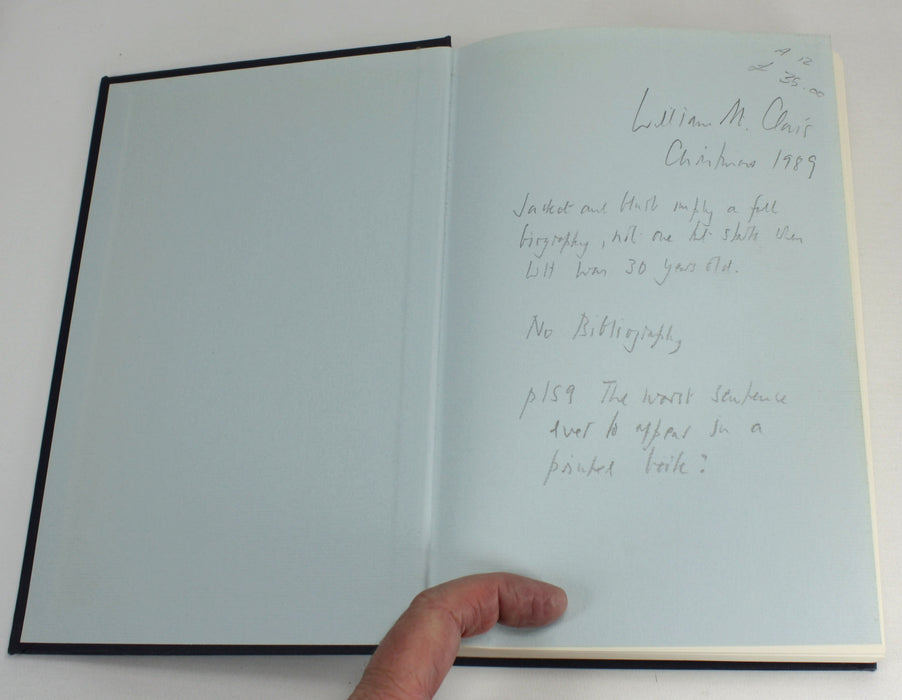 A 12
£ 35.00
William St. Clair
Christmas 1989
Jacket and blurb imply a full
biography, not one that starts when
WH was 30 years old.
No Bibliography
p159 The worst sentence
ever to appear in a
printed book?